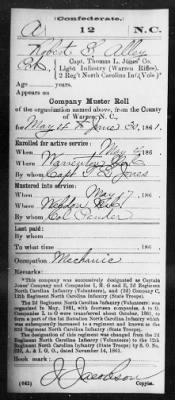 Confederate.
A 12 N.C.
Robert S. Alley
Pvt., Capt. Thomas L. Jones' Co.
Light Infantry (Warren Rifles),
2 Reg't North Carolina Inf. (Vols.)*
Age years.
Appears on
Company Muster Roll
of the organization named above, from the County
of Warren, N. C.,
for May 4 to June 30, 1861.
Enrolled for active service:
When May 4, 186
Where Warrenton, N.C.
By whom Capt. T. L. Jones
Mustered into service:
When May 17, 186
Where
By whom Col. Pender
Last paid:
By whom
To what time 186 .
Occupation Mechanic
Remarks:
*This company was successively designated as Captain
Jones' Company and Companies
North Carolina Infantry (Volunteers), and (2d) Company C,
12th Regiment North Carolina Infantry (State Troops).
The 2d Regiment North Carolina Infantry (Volunteers) was
organized in May, 1861, with
Companies
part of the 1st Battalion North Carolina Infantry which
was subsequently increased to a regiment and known as the
32d Regiment North Carolina Infantry (State Troops).
The designation of this regiment was changed from the 2d
Regiment North Carolina Infantry (Volunteers) to the 12th
Regiment North Carolina Infantry (State Troops) by S. O. No.
222, A. & I. G. O., dated November 14, 1861.
Book mark:
(642) J. Jacobson
Copyist.